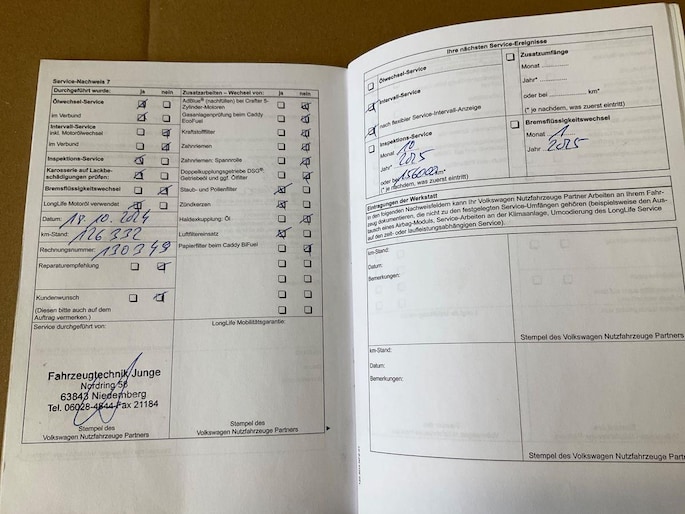 Service-Nachweis 7
Durchgeführt wurde: ja nein
Ölwechsel-Service
im Verbund
Intervall-Service
inkl. Motorölwechsel
im Verbund
Inspektions-Service
Karosserie auf Lackbe-
schädigungen prüfen:
Bremsflüssigkeitswechsel
LongLife Motoröl verwendet
Datum: 18.10.2024
km-Stand: 126332
Rechnungsnummer: 130349
Reparaturempfehlung
Kundenwunsch
(Diesen bitte auch auf dem
Auftrag vermerken.)
Service durchgeführt von:
Fahrzeugtechnik Junge
Nordring 58
63843 Niedernberg
Tel. 06028-4844 Fax 21184
Stempel des
Volkswagen Nutzfahrzeuge Partners
Zusatzarbeiten – Wechsel von: ja nein
AdBlue® (nachfüllen) bei Crafter 5-
Zylinder-Motoren
Gasanlagenprüfung beim Caddy
EcoFuel
Kraftstofffilter
Zahnriemen
Zahnriemen: Spannrolle
Doppelkupplungsgetriebe DSG®:
Getriebeöl und ggf. Ölfilter
Staub- und Pollenfilter
Zündkerzen
Haldexkupplung: Öl
Luftfiltereinsatz
Papierfilter beim Caddy BiFuel
LongLife Mobilitätsgarantie:
Stempel des
Volkswagen Nutzfahrzeuge Partners
Ihre nächsten Service-Ereignisse
Ölwechsel-Service
Intervall-Service
nach flexibler Service-Intervall-Anzeige
Inspektions-Service
Monat 10
Jahr* 2025
oder bei 156000 km*
(* je nachdem, was zuerst eintritt)
Zusatzumfänge
Monat ............
Jahr* ............
oder bei ............ km*
(* je nachdem, was zuerst eintritt)
Bremsflüssigkeitswechsel
Monat 1
Jahr 2025
Eintragungen der Werkstatt
In den folgenden Nachweisfeldern kann Ihr Volkswagen Nutzfahrzeuge Partner Arbeiten an Ihrem Fahr-
zeug dokumentieren, die nicht zu den festgelegten Service-Umfängen gehören (beispielsweise den Aus-
tausch eines Airbag-Moduls, Service-Arbeiten an der Klimaanlage, Umcodierung des LongLife Service
auf den zeit- oder laufleistungsabhängigen Service).
km-Stand:
Datum:
Bemerkungen:
Stempel des Volkswagen Nutzfahrzeuge Partners
km-Stand:
Datum:
Bemerkungen:
Stempel des Volkswagen Nutzfahrzeuge Partners